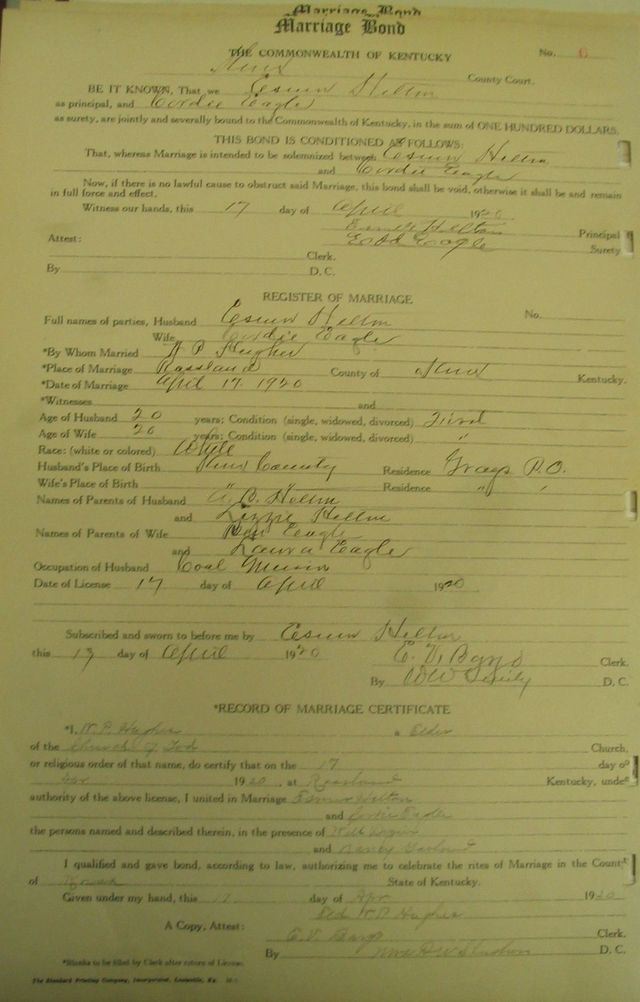 Marriage Bond
Marriage Bond
THE COMMONWEALTH OF KENTUCKY
No. 6
Knox County Court.
BE IT KNOWN, That we Esmer Helton
as principal, and Cordie Eagle
as surety, are jointly and severally bound to the Commonwealth of Kentucky, in the sum of ONE HUNDRED DOLLARS.
THIS BOND IS CONDITIONED AS FOLLOWS:
That, whereas Marriage is intended to be solemnized between Esmer Helton
and Cordie Eagle
Now, if there is no lawful cause to obstruct said Marriage, this bond shall be void, otherwise it shall be and remain
in full force and effect.
Witness our hands, this 17 day of April 1920
Helton Principal
Attest: Eagle Surety
Clerk.
By D. C.
REGISTER OF MARRIAGE
Full names of parties, Husband Esmer Helton No.
Wife Cordie Eagle
*By Whom Married W P Hughes
*Place of Marriage Rossland County of Knox Kentucky.
*Date of Marriage April 17 1920
*Witnesses and
Age of Husband 20 years; Condition (single, widowed, divorced)
Age of Wife 20 years; Condition (single, widowed, divorced) "
Race: (white or colored) White
Husband's Place of Birth Knox County Residence Grays P.O.
Wife's Place of Birth " " Residence " "
Names of Parents of Husband B. Helton
and Lizzie Helton
Names of Parents of Wife Eagle
and Laura Eagle
Occupation of Husband Coal Miner
Date of License 17 day of April 1920
Subscribed and sworn to before me by Esmer Helton
this 17 day of April 1920 Clerk.
By D. C.
*RECORD OF MARRIAGE CERTIFICATE
*I, W. P. Hughes a Elder
of the Church of God Church,
or religious order of that name, do certify that on the 17 day of
Apr 1920, at Rossland Kentucky, under
authority of the above license, I united in Marriage Esmer Helton
and Cordie Eagle
the persons named and described therein, in the presence of
and Nancy
I qualified and gave bond, according to law, authorizing me to celebrate the rites of Marriage in the County
of Knox State of Kentucky.
Given under my hand, this 17 day of Apr 1920
W P Hughes
A Copy, Attest: Clerk.
By D. C.
*Blanks to be filled by Clerk after return of License.
The Standard Printing Company, Incorporated, Louisville, Ky.